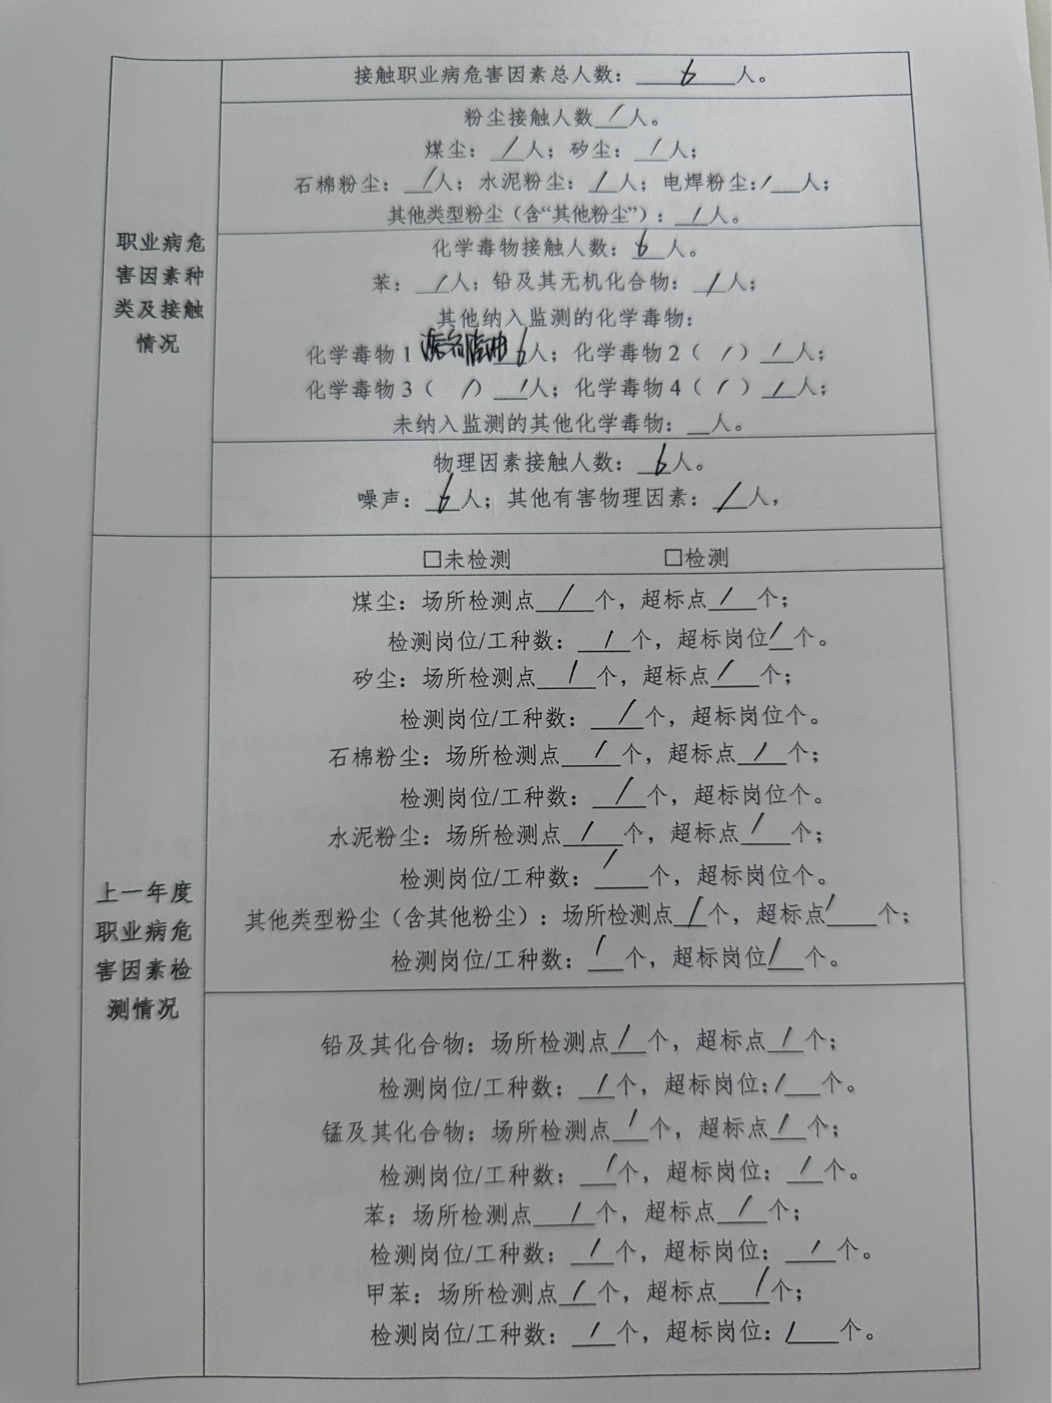 接触职业病危害因素总人数：6人。
粉尘接触人数/人。
煤尘：/人；矽尘：/人；
石棉粉尘：/人；水泥粉尘：/人；电焊粉尘：/人；
其他类型粉尘（含“其他粉尘”）：/人。
职业病危
害因素种
类及接触
情况
化学毒物接触人数：6人。
苯：/人；铅及其无机化合物：/人；
其他纳入监测的化学毒物：
化学毒物1 6人；化学毒物2（/）/人；
化学毒物3（/）/人；化学毒物4（/）/人；
未纳入监测的其他化学毒物：__人。
物理因素接触人数：6人。
噪声：6人；其他有害物理因素：/人，
□未检测 □检测
煤尘：场所检测点/个，超标点/个；
检测岗位/工种数：/个，超标岗位/个。
矽尘：场所检测点/个，超标点/个；
检测岗位/工种数：/个，超标岗位个。
石棉粉尘：场所检测点/个，超标点/个；
检测岗位/工种数：/个，超标岗位个。
水泥粉尘：场所检测点/个，超标点/个；
检测岗位/工种数：/个，超标岗位个。
其他类型粉尘（含其他粉尘）：场所检测点/个，超标点/个；
检测岗位/工种数：/个，超标岗位/个。
上一年度
职业病危
害因素检
测情况
铅及其化合物；场所检测点/个，超标点/个；
检测岗位/工种数；/个，超标岗位：/个。
锰及其化合物；场所检测点/个，超标点/个；
检测岗位/工种数；/个，超标岗位；/个。
苯；场所检测点/个，超标点/个；
检测岗位/工种数；/个，超标岗位；/个。
甲苯：场所检测点/个，超标点/个；
检测岗位/工种数：/个，超标岗位：/个。